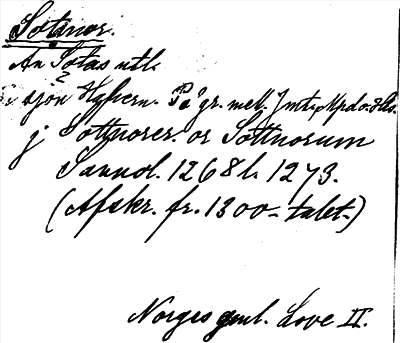 Sotnor.
Ån Sotas utl.
sjön Hyvern. På gr. mell. Jmtl, Mpd o. Hls.
j Sottnorer. or Sottnorum
Sannol. 1268 l. 1273.
(Afskr. fr. 1300-talet.)
Norges gml. Love II.